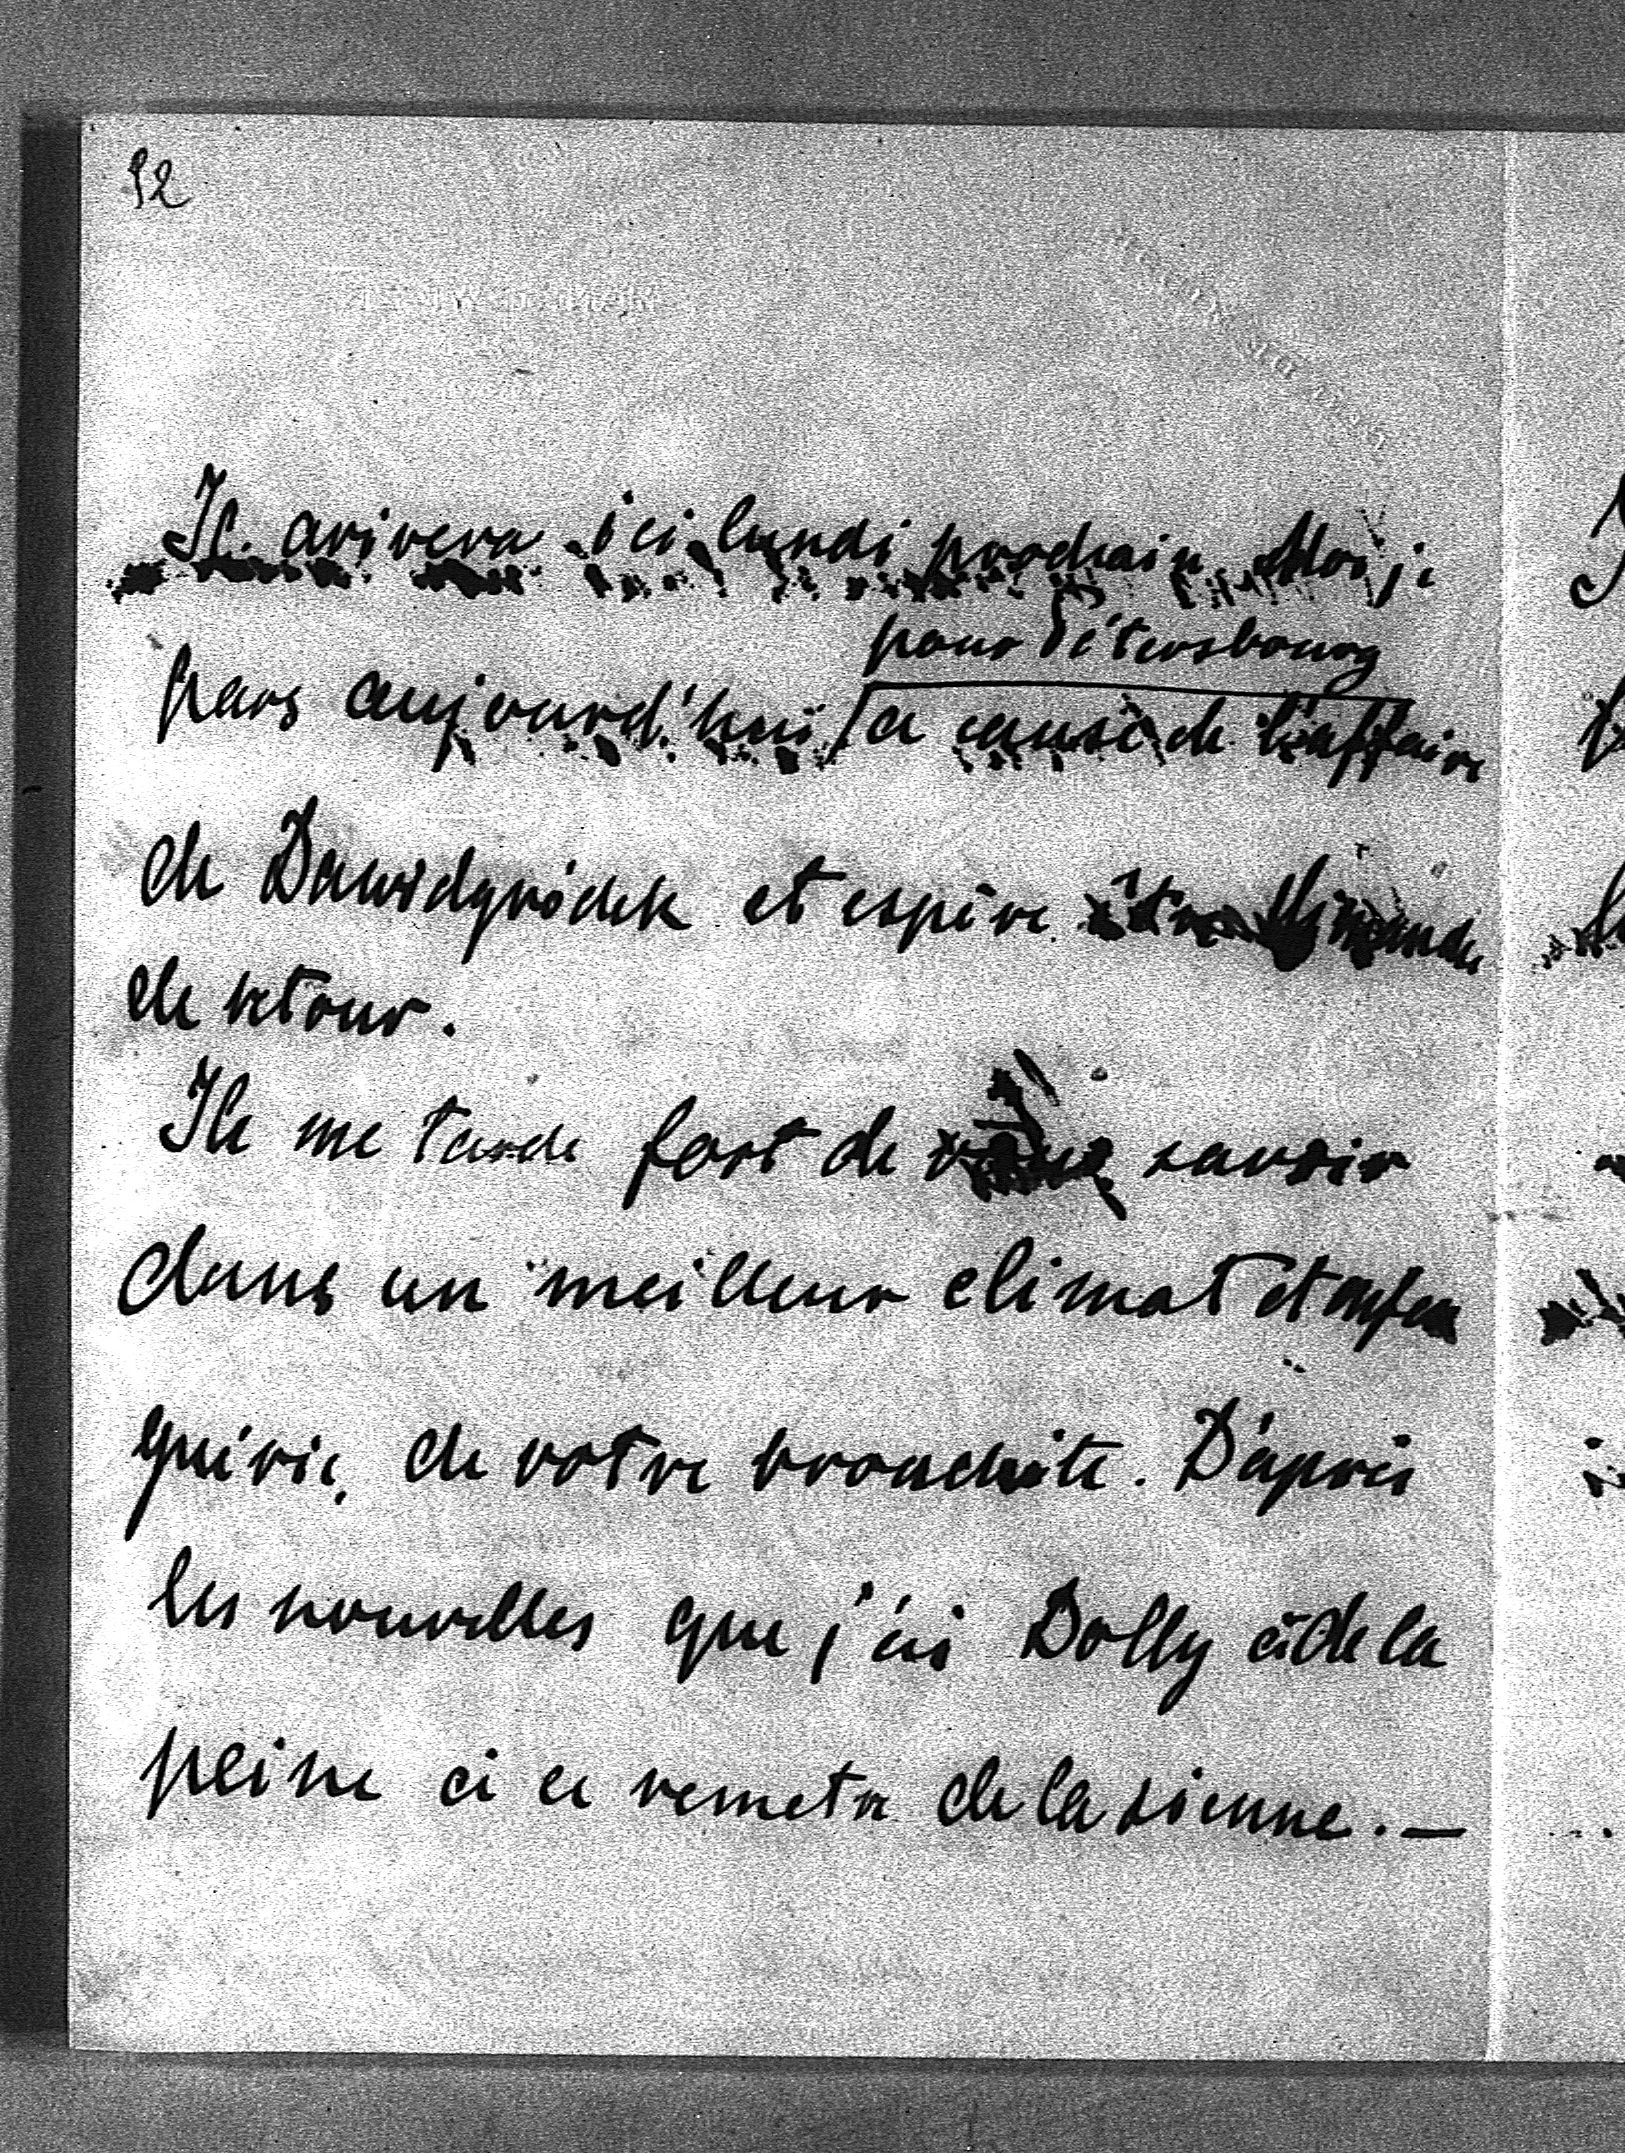 92
Il arivera ici lundi prochain Moi je
pour Pétersbourg
pars aujourd'hui a cause de l'affaire
de Dawidgródek et espère être Dimanche
de retour.
Ile me tarde fort de vous savoir
dans un meilleur climat et
guérie, de votre bronchite. D'après
les nouvelles que j'ai Dolly à de la
peine à ce remetre de la sienne. —